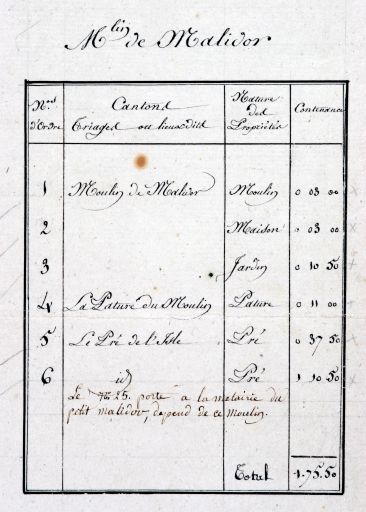 M.lin de Malidor
N.os d'Ordre | Cantons Triages ou lieux dits | Nature des Propriétés | Contenance
1 Moulin de Malidor Moulin 0 03 00
2 Maison 0 03 00
3 Jardin 0 10 50
4 La Pature du Moulin Pature 0 11 00
5 Le Pré de l'Isle Pré 0 37 50
6 id Pré 1 10 50
Le N.o 25. porté à la metairie du
petit malidor, depend de ce moulin.
Total 1.75.50